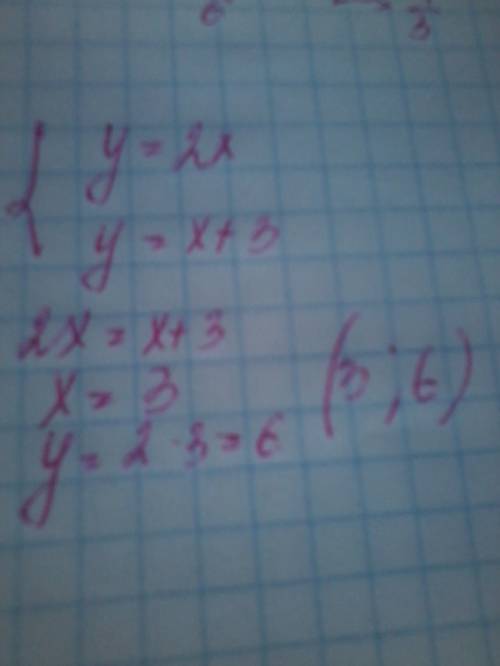 { y = 2x
y = x + 3
2x = x + 3
x = 3
y = 2 · 3 = 6
(3 ; 6)